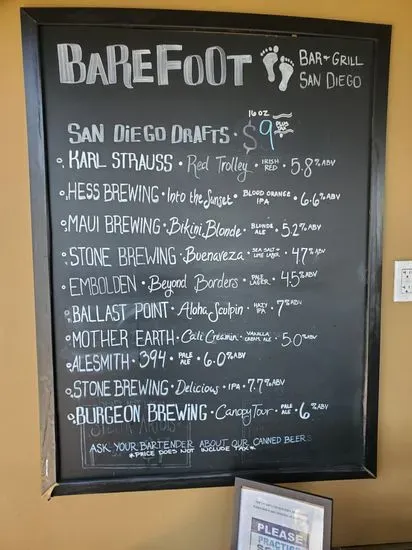 BAREFOOT BAR + GRILL
SAN DIEGO
16 OZ
SAN DIEGO DRAFTS · $9 PLUS TAX
KARL STRAUSS · Red Trolley · IRISH RED · 5.8% ABV
HESS BREWING · Into the Sunset · BLOOD ORANGE IPA · 6.6% ABV
MAUI BREWING · Bikini Blonde · BLONDE ALE · 5.2% ABV
STONE BREWING · Buenaveza · SEA SALT & LIME LAGER · 4.7% ABV
EMBOLDEN · Beyond Borders · PALE LAGER · 4.5% ABV
BALLAST POINT · Aloha Sculpin · HAZY IPA · 7% ABV
MOTHER EARTH · Cali Creamin · VANILLA CREAM ALE · 5.0% ABV
ALESMITH · 394 · PALE ALE · 6.0% ABV
STONE BREWING · Delicious · IPA · 7.7% ABV
BURGEON BREWING · Canopy Tour · PALE ALE · 6% ABV
ASK YOUR BARTENDER ABOUT OUR CANNED BEERS
*PRICE DOES NOT INCLUDE TAX*
PLEASE
PRACTICE